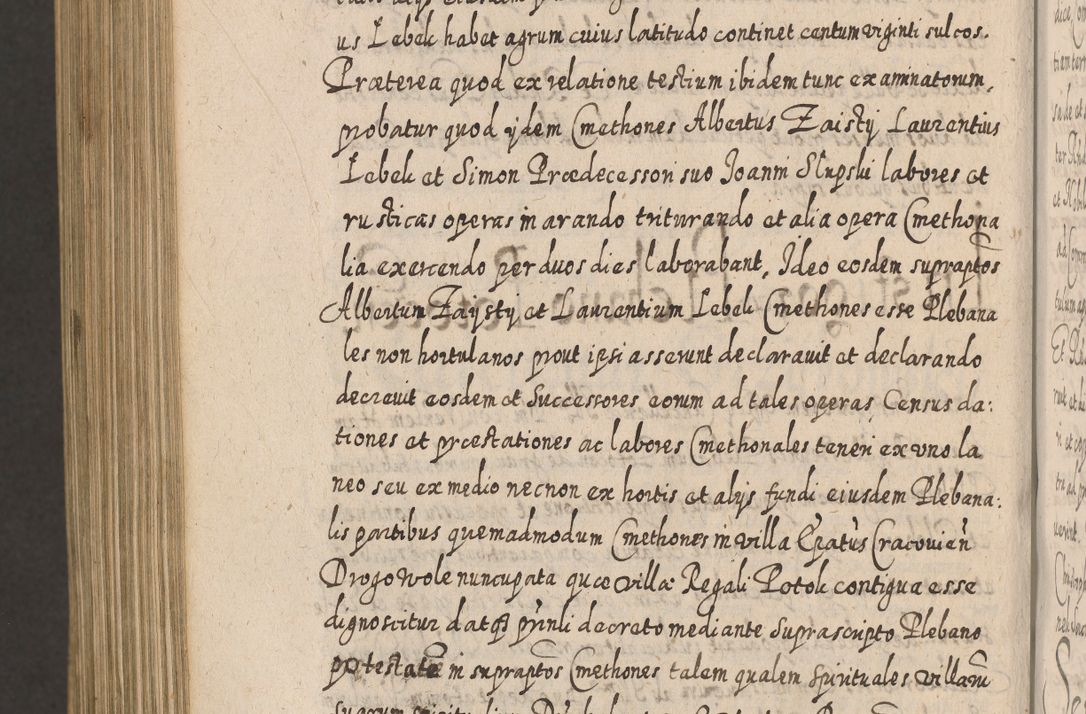 us Lebek habet agrum cuius latitudo continet centum viginti sulcos.
Præterea quod ex relatione testium ibidem tunc examinatorum,
probatur quod ijdem Cmethones Albertus Zaisty Laurentius
Lebek et Simon Prædecessori suo Joanni Slupski labores et
rusticas operas in arando triturando et alia opera Cmethona
lia exercendo per duos dies laborabant, Ideo eosdem supraptos
Albertum Zaysty et Laurentium Lebek Cmethones esse Plebana
les non hortulanos prout ipsi asserunt declarauit et declarando
decreuit eosdem et Successores eorum ad tales operas Census da:
tiones et præstationes ac labores Cmethonales teneri ex vno la
neo seu ex medio necnon ex hortis et alijs fundi eiusdem Plebana:
lis partibus quemadmodum Cmethones in villa Epatus Cracouien
Drogowole nuncupata quæ villæ Regali Potok contigua esse
dignoscitur datqȝ prnti decreto mediante suprascripto Plebano
potestatē in supraptos Cmethones talem qualem spirituales villarū